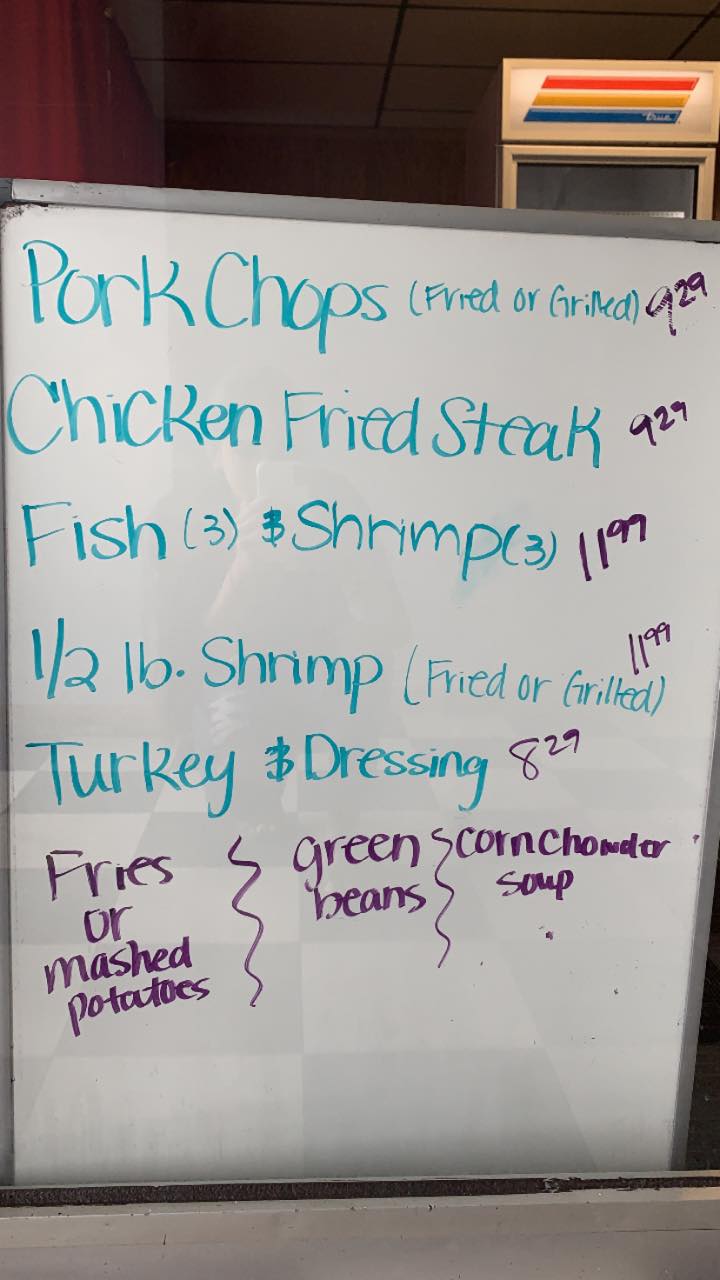 True
Pork Chops (Fried or Grilled) 9.29
Chicken Fried Steak 9.29
Fish (3) & Shrimp (3) 11.99
1/2 lb. Shrimp (Fried or Grilled) 11.99
Turkey & Dressing 8.29
Fries or mashed potatoes
green beans
corn chowder soup